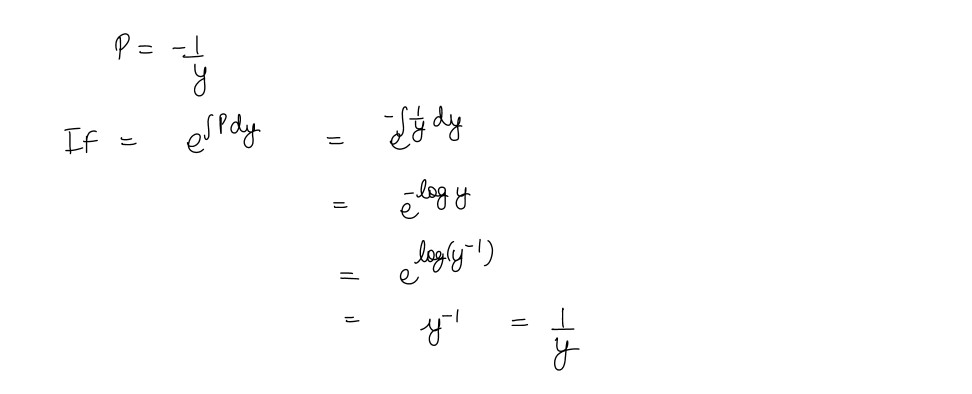 P = -1/y
IF = e^∫Pdy = e^-∫1/y dy
= e^-log y
= e^log(y^-1)
= y^-1 = 1/y